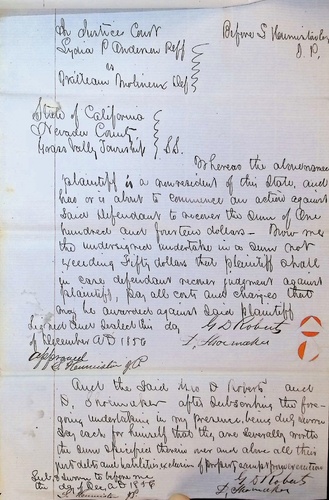 In Justices Court Before S
Lydia P Anderson Plff J. P.
vs
William Molineux Def
State of California
Nevada County
Grass Vally Township SS.
Whereas the abovenamed
plaintiff is a nonresident of this State, and
has or is about to commence an action against
Said defendant to recover the Sum of One
hundred and fourteen dollars — Now we
the undersigned undertake in a Sum not
exceeding Fifty dollars that plaintiff shall
in case defendant recover judgment against
plaintiff, pay all costs and charges that
may be awarded against Said plaintiff
Signed and Sealed this day G D Roberts
of December AD 1856 Shoemaker
approved
J P
And the Said Geo D Roberts and
Shoemaker after Subscribing the fore-
going undertaking in my presence, being duly sworn
Say each for himself that they are severally worth
the Sum Specified therein over and above all their
just debts and liabilities exclusive of property exempt from execution
Sub & Sworn to before me G D Roberts
the day of Dec. AD 1856 Shoemaker
J P